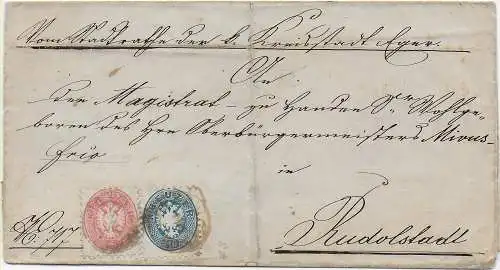 Vom Stadtrathe der k. Kreisstadt Eger.
An
den Magistrat – zu Handen Sr Wohlge-
boren des Hrn Oberbürgermeisters
in
Rudolstadt